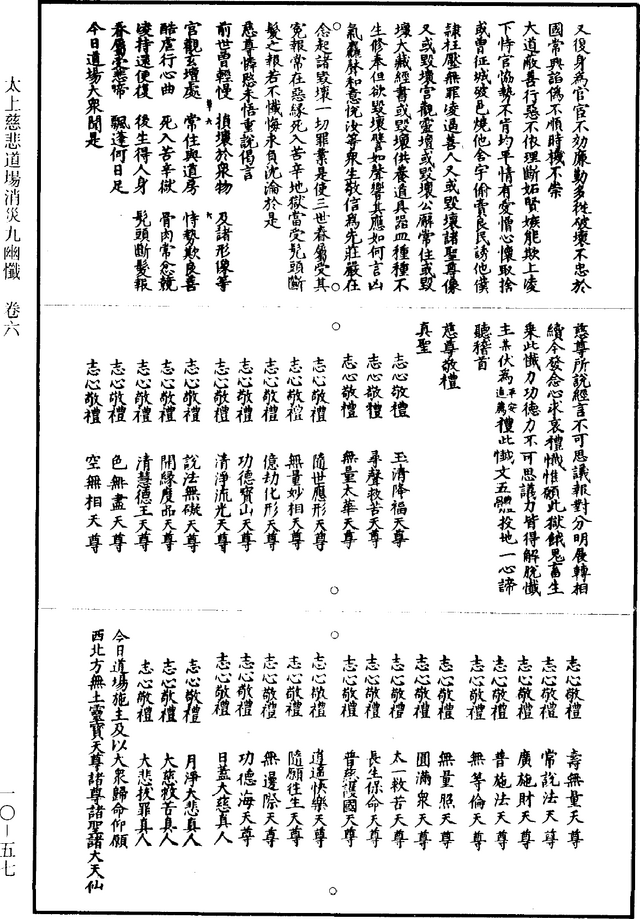 又復身爲官宦不効廉勤多從破壞不忠於
國常興諂僞不順時機不崇
大道敵善行惡不依理斷妬賢嫉能欺上凌
下恃官恊勢不肯均平情有愛憎心懷取捨
或曾征城破邑燒他舍宇偷賣良民謗他僕
隸枉壓無罪凌逼善人又或毀壞諸聖尊像
又或毀壞宮觀靈壇或毀壞公廨常住或毀
壞大藏經書或毀壞供養道具器皿種種不
生修奉但欲毀壞譬如聲響其應如何言凶
氣麤穌和意悅汝等衆生敬信爲先莊嚴在
念起諸毀壞一切罪業是使三世眷屬受其
寃報常在惡緣死入苦辛地獄當受髠頭斷
髮之報若不懺悔永負沈淪於是
慈尊憐愍未悟重說偈言
前世曾輕慢 損壞於衆物 及諸形像等
宮觀玄壇處 常住與道房 恃勢欺良善
酷虐行心曲 死入苦辛獄 骨肉常忿競
凌持還便復 後生得人身 髠頭斷髮報
眷屬受悲啼 飄蓬何日足
今日道場大衆聞是
慈尊所說經言不可思議報對分明展轉相
續今發念心求哀禮懺惟願此獄餓鬼畜生
乘此懺力功德力不可思議力皆得解脫懺
主某伏爲平安追薦禮此懺文五體投地一心諦
聽稽首
慈尊敬禮
真聖
志心敬禮 玉清降福天尊
志心敬禮 尋聲救苦天尊
志心敬禮 無量太華天尊
志心敬禮 隨世應形天尊
志心敬禮 無量妙相天尊
志心敬禮 億劫化形天尊
志心敬禮 功德寶山天尊
志心敬禮 清淨流光天尊
志心敬禮 說法無礙天尊
志心敬禮 開緣度品天尊
志心敬禮 清慧德王天尊
志心敬禮 色無盡天尊
志心敬禮 空無相天尊
志心敬禮 壽無量天尊
志心敬禮 常說法天尊
志心敬禮 廣施財天尊
志心敬禮 普施法天尊
志心敬禮 無等倫天尊
志心敬禮 無量照天尊
志心敬禮 圓滿衆天尊
志心敬禮 太一救苦天尊
志心敬禮 長生保命天尊
志心敬禮 普慈護國天尊
志心敬禮 逍遥快樂天尊
志心敬禮 隨願往生天尊
志心敬禮 無邊際天尊
志心敬禮 功德海天尊
志心敬禮 日蓋大慈真人
志心敬禮 月淨大悲真人
志心敬禮 大慈救苦真人
志心敬禮 大悲拔罪真人
今日道場施主及以大衆歸命仰願
西北方無上靈寶天尊諸尊諸聖諸大天仙
太上慈悲道場消災九幽懺 卷六
一〇—五七